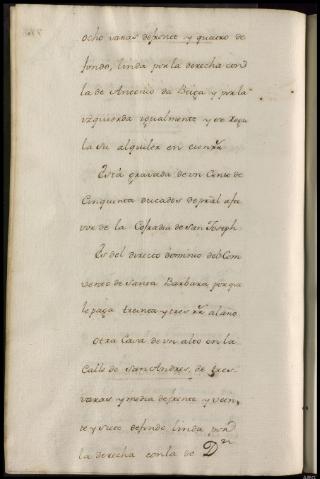 ocho varas de frente y quatro de
fondo, linda por la derecha con
la de Antonio da Beiga y por la
yzquierda ygualmente y se regu
la su alquiler en cien rr
Está gravada de un Censo de
Cinquenta ducados de pral afa
vor de la Cofradia de San Joseph
Es del directo dominio del Com
vento de Santa Barbara por que
le paga treinta y tres rr al año
Otra Casa de un alto en la
Calle de San Andres, de tres
varas y media de frente y vein,
te y siete de fondo linda por
la derecha con la de Dn